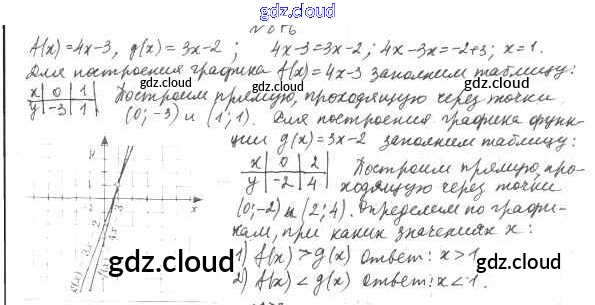 gdz.cloud
№056
f(x)=4x-3, g(x)=3x-2; 4x-3=3x-2; 4x-3x=-2+3; x=1.
Для построения графика f(x)=4x-3 заполним таблицу:
x 0 1
y -3 1
Построим прямую, проходящую через точки
(0;-3) и (1;1). Для построения графика функ-
ции g(x)=3x-2 заполним таблицу:
x 0 2
y -2 4
Построим прямую, про-
ходящую через точки
(0;-2) и (2;4). Определяем по графи-
кам, при каких значениях x:
1) f(x)>g(x) Ответ: x>1
2) f(x)<g(x) Ответ: x<1.
y
x
gdz.cloud
gdz.cloud